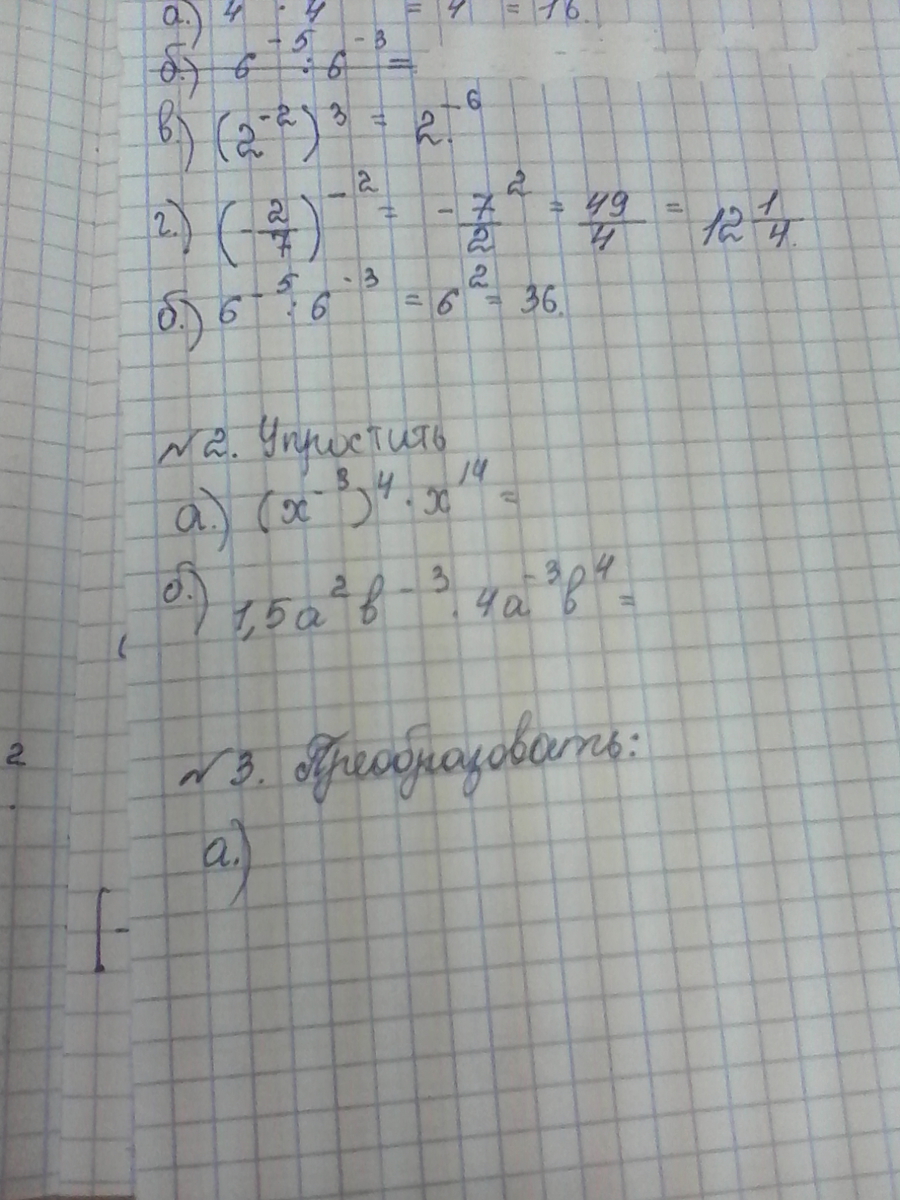 а.) 4 · 4 = 4 = 16.
б.) 6⁻⁵ : 6⁻³ =
в.) (2⁻²)³ = 2⁻⁶.
г.) (-2/7)⁻² = -7/2² = 49/4 = 12 1/4.
б.) 6⁻⁵ : 6⁻³ = 6² = 36.
№2. Упростить
а.) (x⁻³)⁴ · x¹⁴ =
б.) 1,5a²b⁻³ · 4a⁻³b⁴ =
№3. Преобразовать:
а.)
2